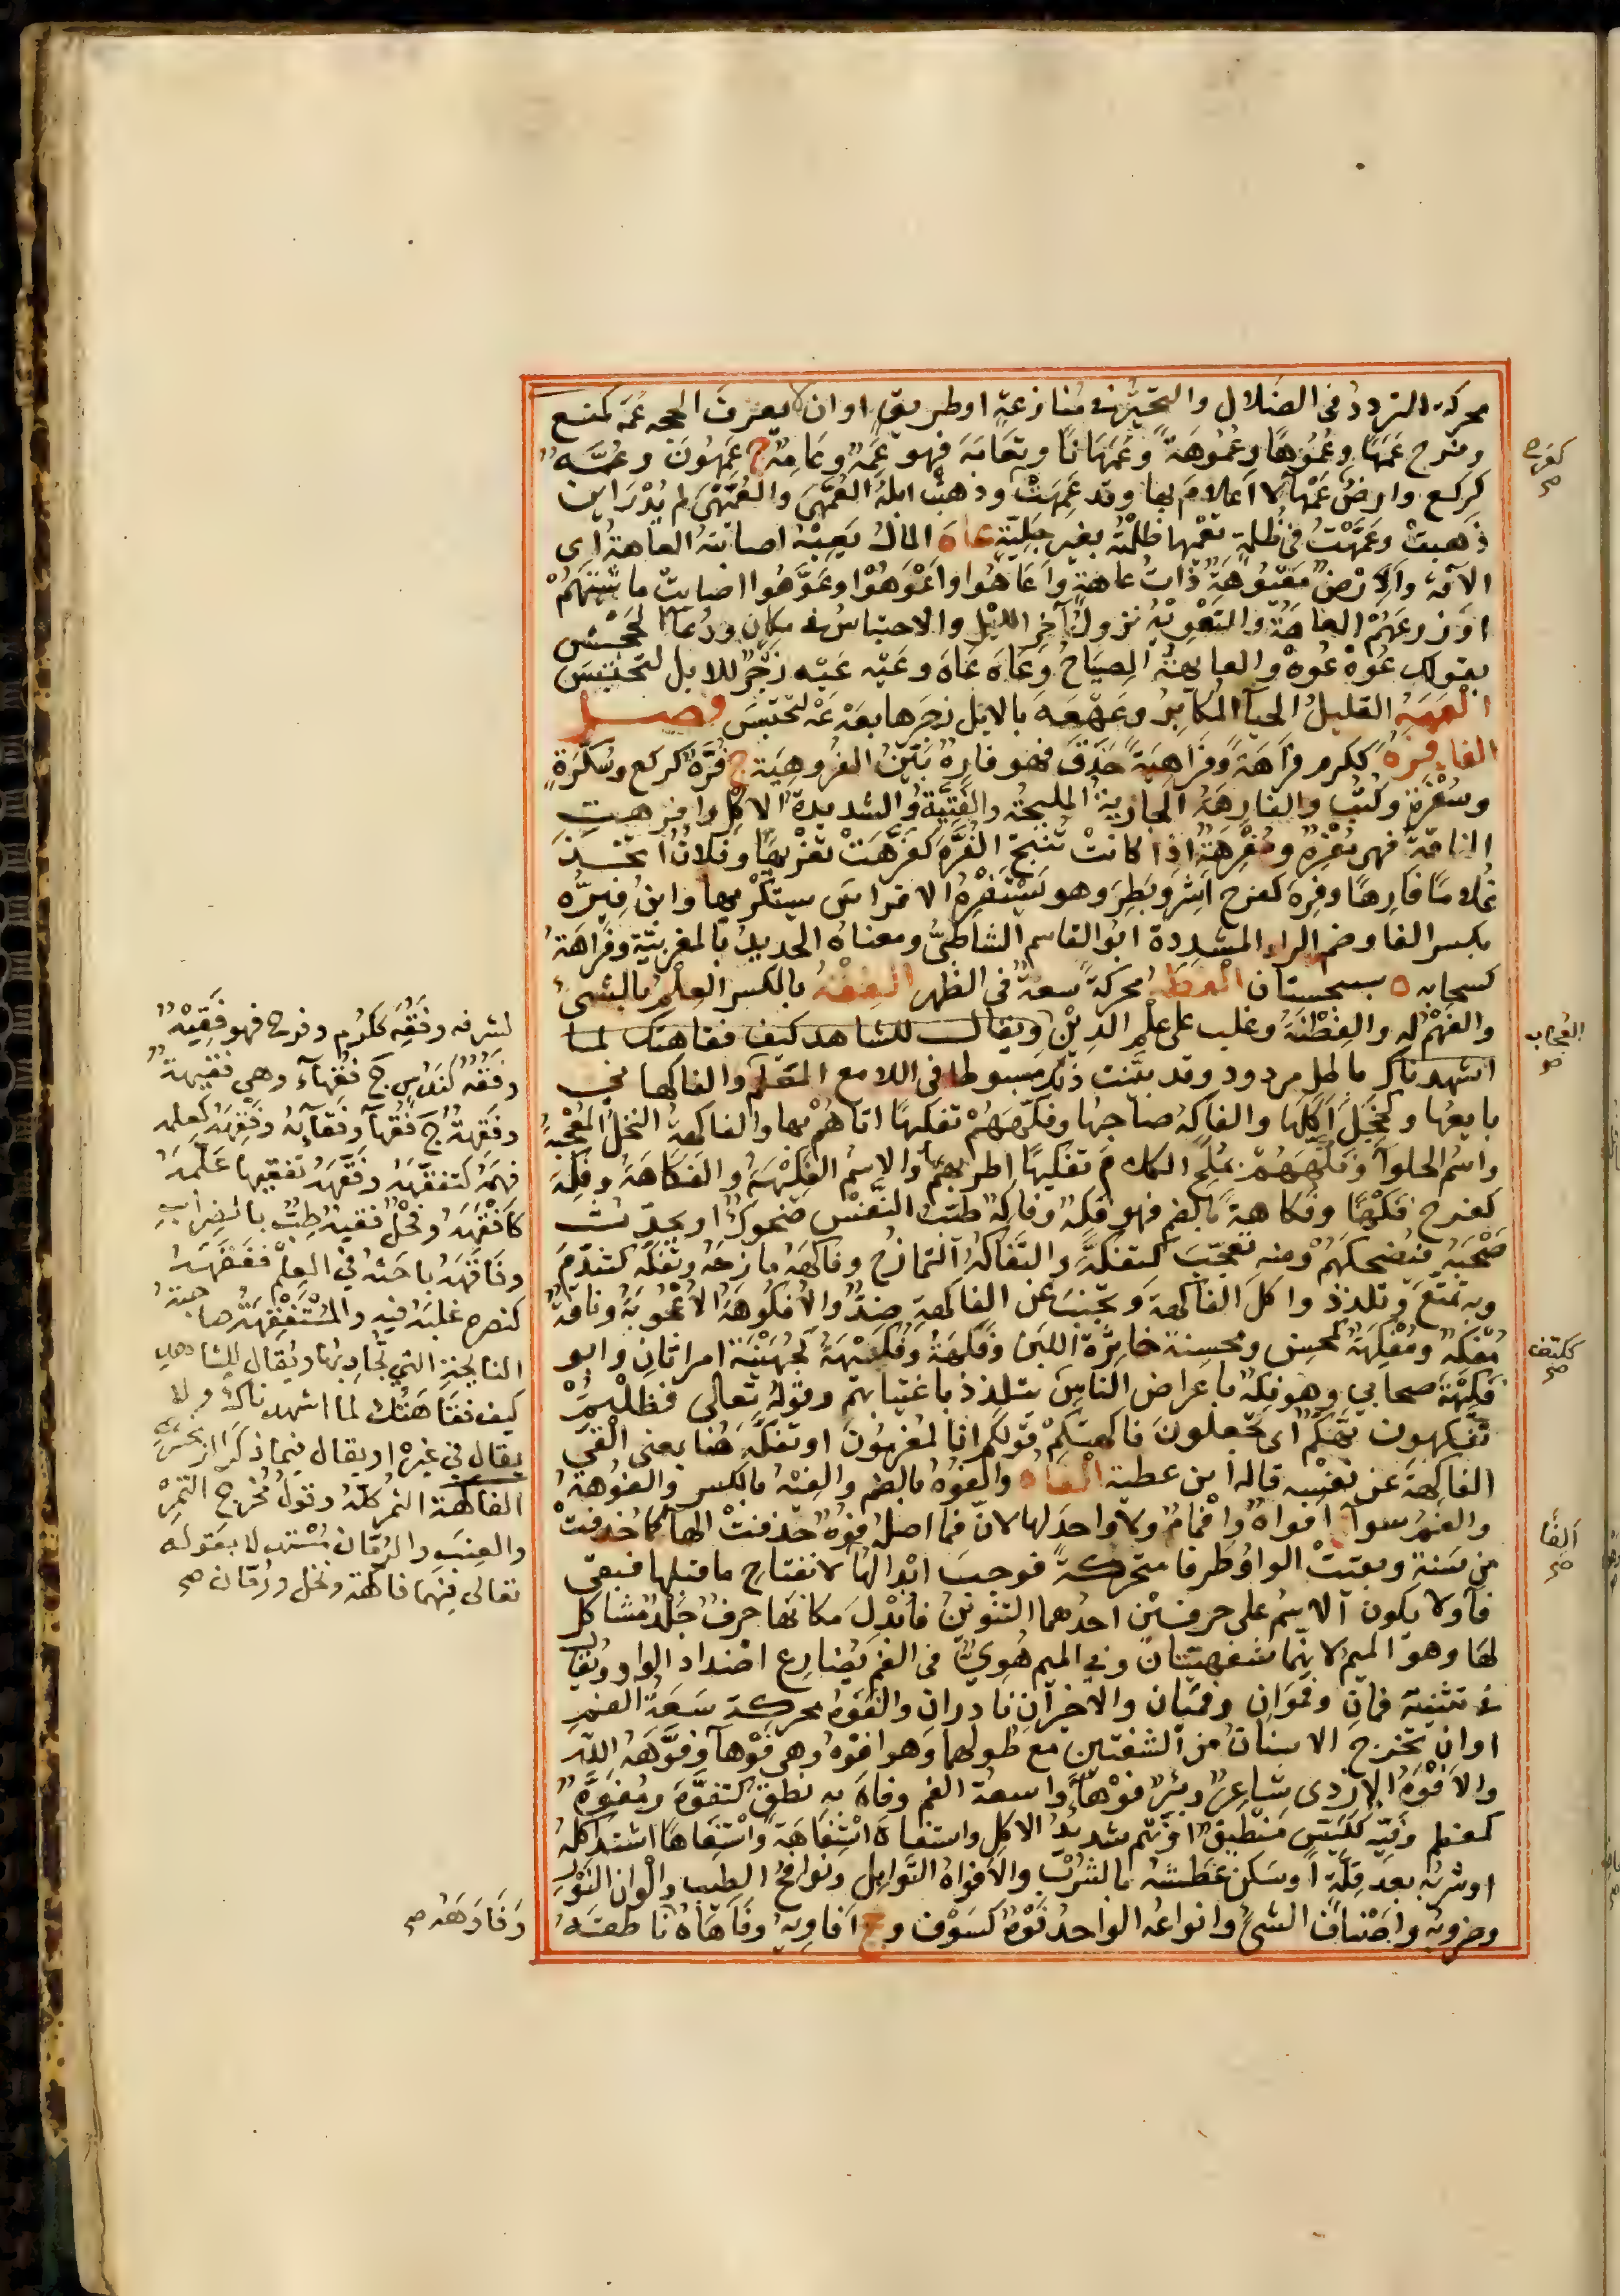 محركة التردد في الضلال والتحير في منازعة او طريق او ان لا يعرف الحجة عمه كمنع
وفرح عمها وعموها وعموهة وعمهانا وتعامه فهو عمه وعامه ج عمهون وعمه
كركع وارض عمها لا اعلام بها وقد عمهت وذهبت ابله العمهى والعميهى لم يدر اين
ذهبت وعمهت في ظلمه تعميها ظلمته بغير جلية عاه المال يعيه اصابته العاهة اى
الآفة والارض معيوهة ذات عاهة واعاهوا واعوهوا وعوهوا اصابت ماشيتهم
او زرعهم العاهة والتعويه نزول آخر الليل والاحتباس في مكان ودعا الجحش
بقولك عوه عوه والعايهة الصياح وعاه عاه وعيه عيه زجر للابل لتحتبس
العهعه القليل الحيا المكابر وعهعه بالابل زجرها بعه عه لتحتبس فصل
الفا فره ككرم فراهة وفراهية حذق فهو فاره بين الفروهية ج فره كركع وسكرة
وسفرة وكتب والفارهة الجارية المليحة والفتية والشديدة الاكل وافرهت
الناقة فهي مفره ومفرهة اذا كانت تنتج الفره كفرهت تفريها وفلان اتخذ
غلاما فارها وفره كفرح اشر وبطر وهو يستفره الافراس يستكرمها وابن فيره
بكسر الفا وضم الراء المشددة ابو القاسم الشاطبي ومعناه الحديد بالمغربية وفراهة
كسحابه ه بسجستان الفطه محركة سعة في الظهر الفقه بالكسر العلم بالشئ
والفهم له والفطنة وغلب على علم الدين ويقال للشاهد كيف فقاهتك لما
اشهدناك باطل مردود وقد بينت ذلك مبسوطا في اللامع المعلم والفاكهاني
بايعها وكخجل آكلها والفاكه صاحبها وفكههم تفكيها اتاهم بها والفاكهة النخل المعجبة
واسم الحلوآ وفكههم بملح الكلام تفكيها اطرفهم بها والاسم الفكيهة والفكاهة وفكه
كفرح فكها وفكاهة بالضم فهو فكه وفاكه طيب النفس ضحوك او يحدث
صحبه فيضحكهم ومنه تعجب كتفكه والتفاكه التمازح وفاكهه مازحه وتفكه كتندم
وبه تمتع وتلذذ واكل الفاكهة وتجنب عن الفاكهة ضد والافكوهة الاعجوبة وناقة
مفكه ومفكهة كمحسن ومحسنة خاثرة اللبن وفكهة وفكيهة كجهينة امراتان وابو
فكيهة صحابي وهو فكه باعراض الناس يتلذذ باغتيابهم وقوله تعالى فظلتم
تفكهون تهكم اى تجعلون فاكهتكم قولكم انا لمغرمون او تفكه هنا بمعنى القى
الفاكهة عن نفسه قاله ابن عطية الفاه والفوه بالضم والفيه بالكسر والفوهة
والفم سوآ افواه وافمام ولا واحد لها لان فما اصله فوه حذفت الها كما حذفت
من سنة وبقيت الواو طرفا متحركة فوجب ابدالها لانفتاح ما قبلها فبقى
فا ولا يكون الاسم على حرفين احدهما التنوين فابدل مكانها حرف جلد مشاكل
لها وهو الميم لانهما شفهيتان وفي الميم هوي في الفم يضارع امتداد الواو ويقال
في تثنية فمان وفموان وفميان والاخيران نادران والفوه محركة سعة الفم
او ان تخرج الاسنان من الشفتين مع طولهما وهو افوه وهي فوها وفوهه الله
والافوه الازدى شاعر وبئر فوهآ واسعة الفم وفاه به نطق كتفوه ومفوه
كمعظم وفيه ككيس منطيق او نهم شديد الاكل واستفاه استفاهة واستفاها اشتد اكله
او شربه بعد قلة او سكن عطشه بالشرب والافواه التوابل ونوافح الطيب والوان النور
وضروبه واصناف الشئ وانواعه الواحد فوه كسوق وجج افاويه وفاهاه ناطقه
كفرح صح
العجاب
ككتف صح
الفا صح
لشرفه وفقه ككرم وفرح فهو فقيه
وفقه كندس ج فقهاء وهي فقيهة
وفقهة ج فقهآ وفقائه وفقهه كعلمه
فهمه كتفقهه وفقهه تفقيها علمه
كافقهه وفحل فقيه طب بالضراب
وفاقهه باحثه في العلم ففقهه
كنصره غلبه فيه والمستفقهة صاحبة
النايحة التي تجاوبها ويقال للشاهد
كيف فقاهتك لما اشهدناك ولا
يقال في غيره او يقال فيما ذكر الزمخشري
الفاكهة الثمر كله وقول مخرج التمر
والعنب والرمان مستدلا بقوله
تعالى فيهما فاكهة ونخل ورمان صح
وفاوهه صح